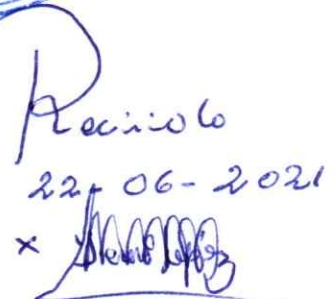 Recibido
22-06-2021
x